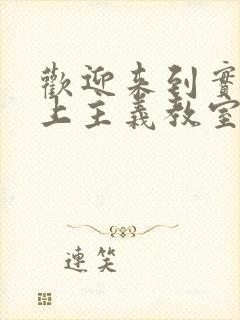 歡迎來到實
上主義教室
連笑